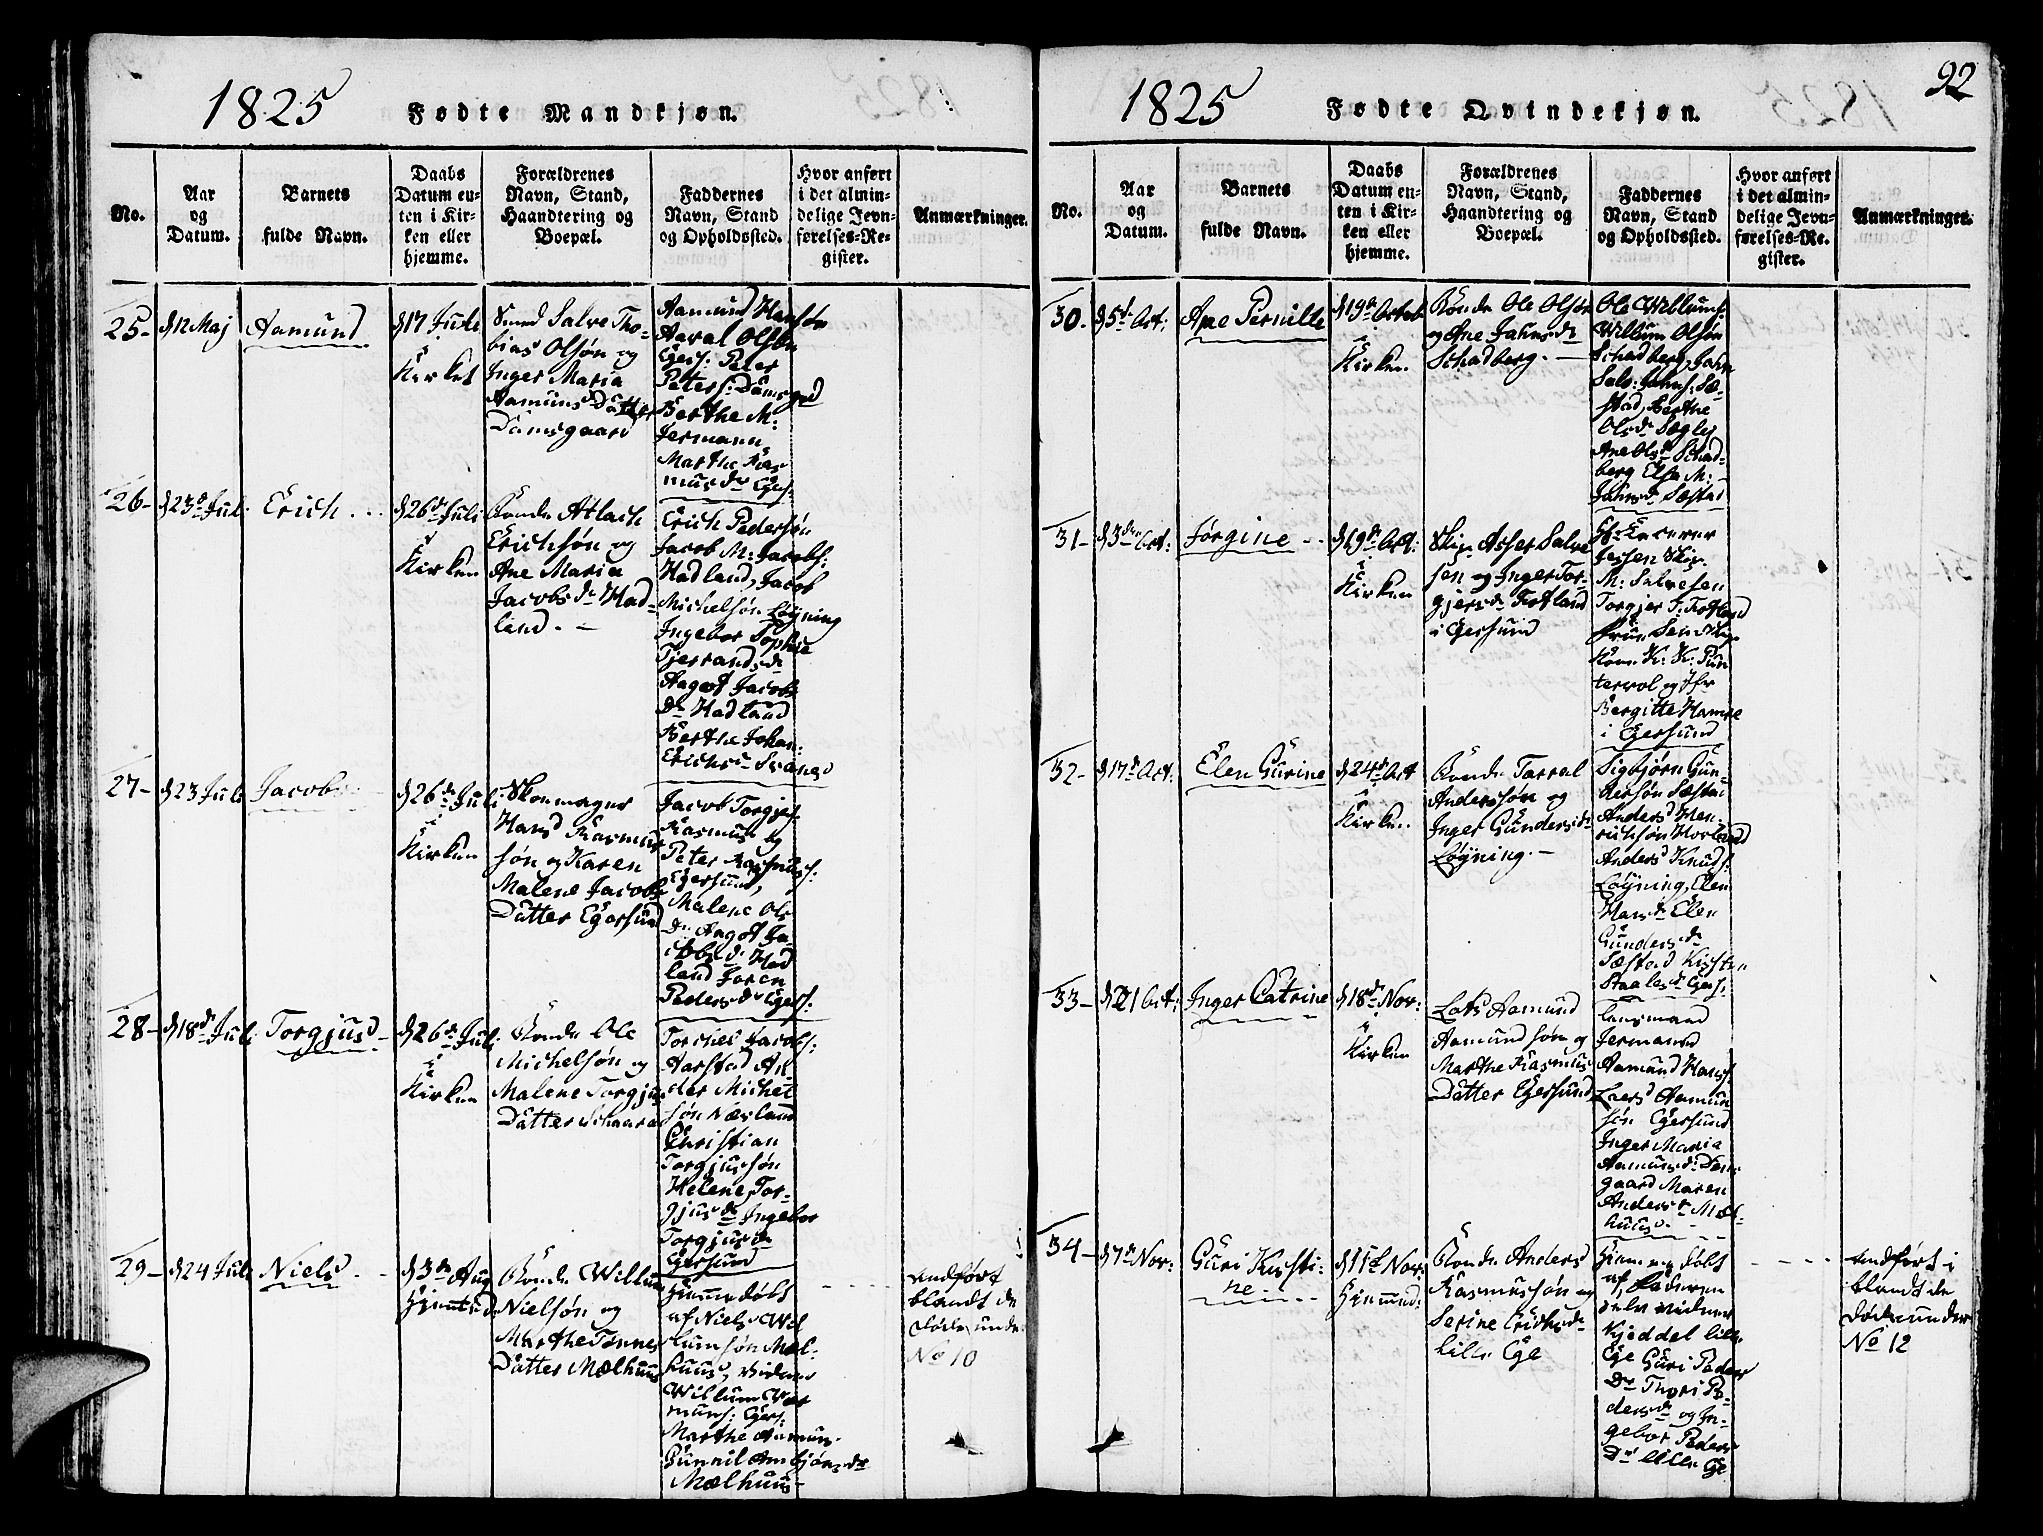 1825 Fødte Mandkjøn.
No.
Aar
og
Datum.
Barnets
fulde Navn.
Daabs
Datum en-
ten i Kir-
ken eller
hjemme.
Forældrenes
Navn, Stand,
Haandtering og
Boepæl.
Faddernes
Navn, Stand
og Opholdssted.
Hvor anført
i det almin-
delige Jevn-
førelses-Re-
gister.
Anmærkninger.
25-
d 12 Maj
Aamund
d 17 Juli
i
Kirken
Smed Salve Tho-
bias Olsøn og
Inger Maria
Aamunds Datter
Damsgaard
Aamund Hansøn
Aaval Olsøn
Egers: Peter
Peters: Damsgrd
Berthe M:
Jermann
Marthe Ras
musdr Egers:
26-
d 23de Juli
Erich
d 26de Juli
i
Kirken
Bonde Atlach
Erichsøn og
Ane Maria
Jacobsdr Had-
land. -
Erich Pedersøn
Jacob M: Jacobs:
Hadland, Jacob
Michelsøn Løyning
Ingebor Sophie
Tjerandsdr
Aagot Jacobs
Dr Hadland
Berthe Johan:
Erichsdr Svanes
27-
d 23 Juli
Jacob
d 26de Juli
i
Kirken
Skomager
Hans Rasmus
søn og Karen
Malene Jacobs
Datter Egersund
Jacob Torgjes
Rasmus og
Peter Rasmuss:
Egersund,
Malene Ols
dr Aagot Ja-
cobsdr Had
land Joren
Pedersdr Egers:
28-
d 18de Juli
Torgjus
d 26de Juli
i
Kirken
Bonde Ole
Michelsøn og
Malene Torgjus
Datter Schaara
Torches Jacobs:
Aarstad An
der Michel
søn Nærland
Christian
Torgjussøn
Helene Tor-
gjusdr Ingebor
Torgjusdr
Egersund
29-
d 24 Juli
Niels
d 3de Aug
Hjemmed
Bonde Willum
Nielsøn og
Marthe Tønnes
Datter Mælhuus
Hjemmedøbt
af Niels Wil
lumsøn Mæl-
huus, vidner
Willum Wer
muns: Egers:
Marthe Aamun
Gunnil Ambjørnsdr
Mælhuus-
Andført
blandt de
døde unde
No 10
1825 Fødte Qvindekjøn.
92
No.
Aar
og
Datum.
Barnets
fulde Navn.
Daabs
Datum en-
ten i Kir-
ken eller
hjemme.
Forældrenes
Navn, Stand,
Haandtering og
Boepæl.
Faddernes
Navn, Stand
og Opholdssted.
Hvor anført
i det almin-
delige Jevn-
førelses-Re-
gister.
Anmærkninger.
30.
d 5t Oct:
Ane Pernille
d 19de Octob
i
Kirken.
Bonde Ole Olsøn
og Ane Jahnsdr
Schadberg. -
Ole Willums:
Willum Olsøn
Schadberg, Jahn
Salv: Jahns: Sæ-
stad, Berthe
Olsdr Sægley
Ane Olsdr Schad-
berg Elsa M:
Jahnsdr Sæstad
31-
d 3de Oct:
Jørgine
d 19de Oct:
i
Kirken
Skip: Asser Salve
sen og Inger Tor-
gjersdr Fotland
i Egersund
Jessen Skip.
M: Salvesen
Torgjer T: Fotland
Kone K: K: Pün
tervol og Jfr
Bergitte Hamre
i Egersund
32-
d 17de Oct:
Elen Gurine
d 24de Oct
i
Kirken.
Bonde Tarral
Anderssøn og
Inger Gundersdr
Løyning. -
Sigbjørn Gun-
dersøn Sæstad
Anders Hen
richsøn Hovland
Anders Knuds:
Løyning, Elen
Hansdr Elen
Gundersdr
Sæstad Kirsten
Staalesdr Egers:
33-
d 21 Oct:
Inger Catrine
d 18de Nov:
i
Kirken
Lots Aamund
Aamundsøn og
Marthe Rasmus
Datter Egersund
Lensmand
Jermann
Aamund Hans:
Laers Aamun
søn Egersund
Inger Maria
Aamunsdr Dam
gaard Maren
Andersdr Mæl-
huus. -
34-
d 7de Nov:
Guri Kirsti-
ne.
d 11t Nov:
Hjemmed:
Bonde Anders
Rasmussøn og
Serine Erichsdr
Lille Ege
Hjemmedøbt
af Faderen
selv vidner
Kjeddel lille
Ege Guri Peders
Dr Thori Pe-
dersdr og In-
gebor Peders
Dr lille Ege
Andført i-
blandt de
døde under
No 12